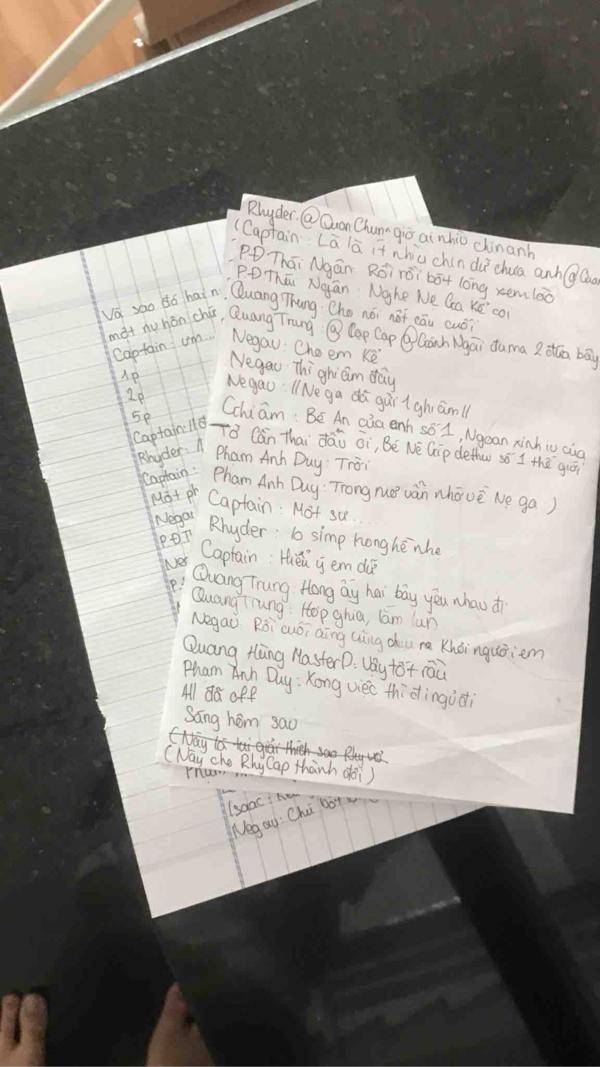 Rhyder: @QuanChun giờ ai nhiù chín anh
(Captain: Là là ít nhiu chín dữ chưa anh @Quan
P.Đ Thái Ngân: Rồi rồi bớt lóng xem lào
P.Đ Thái Ngân: Nghe Ne Ga kể coi
Quang Trung: Cho nói nốt câu cuối
Quang Trung: @Cap Cap @Cánh Ngãi đưma 2 đứa bây
Negav: Cho em kể
Negav: Thì ghi âm đây
Negav: //Nega đã gửi 1 ghi âm//
Ghi âm: Bé An của anh số 1, Ngoan xinh iu của
Tở Cần Thai đấu òi, Bé Nê Gíp dethw số 1 thế giới
Phạm Anh Duy: Trời
Phạm Anh Duy: Trong mơ vẫn nhớ về Nẹ ga)
Captain: Một sự...
Rhyder: lo simp hong hề nhe
Captain: Hiểu ý em dữ
Quang Trung: Hong ấy hai bây yêu nhau đi
Quang Trung: Hợp ghia, lắm lun
Negav: Rồi cuối cùng cũng chịu ra khỏi người em
Quang Hùng MasterD: Vậy tốt rồi
Phạm Anh Duy: Xong việc thì đi ngủ đi
All đã off
Sáng hôm sau
(Này là tui giải thích sao Rhy và
(Này cho RhyCap thành đôi)
Và sao đó hai n
một nụ hôn chứ
Captain: ưm...
1p
2p
5p
Captain: //đ
Rhyder: //
Captain:
Một ph
Negav
P.Đ.T
Ne
P.
Isaac:
Negav: Chú bớt